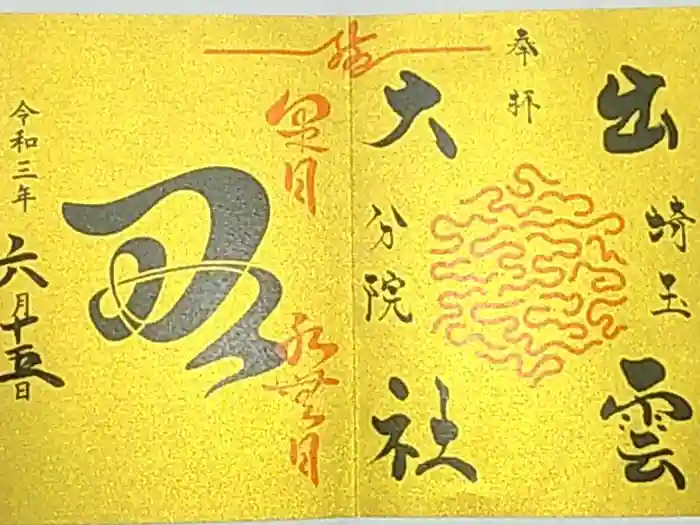 出雲
埼玉
奉拝
大社
分院
水無月
令和三年
六月十五日